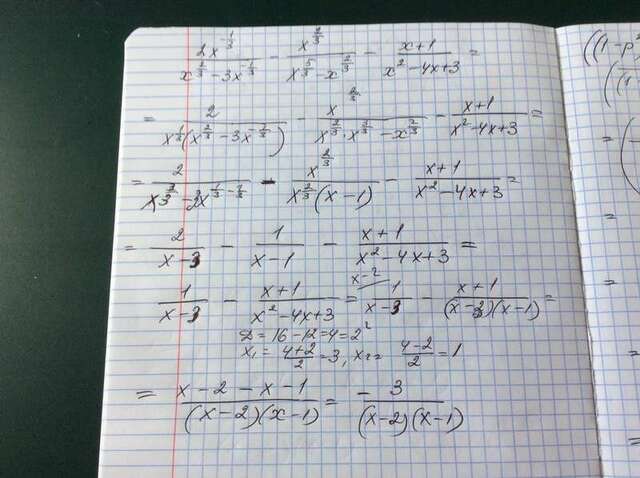 2x^{-1/3} / (x^{2/3} - 3x^{-1/3}) - x^{2/3} / (x^{5/3} - x^{2/3}) - (x+1) / (x² - 4x + 3) =
= 2 / (x^{1/3}(x^{2/3} - 3x^{-1/3})) - x^{2/3} / (x^{2/3} · x^{3/3} - x^{2/3}) - (x+1) / (x² - 4x + 3) =
- x^{2/3} / (x^{2/3}(x-1)) - (x+1) / (x² - 4x + 3) =
= 2 / (x-3) - 1 / (x-1) - (x+1) / (x² - 4x + 3) =
x-2
1 / (x-3) - (x+1) / (x² - 4x + 3) = 1 / (x-3) - (x+1) / ((x-3)(x-1)) =
D = 16 - 12 = 4 = 2²
x₁ = (4+2)/2 = 3, x₂ = (4-2)/2 = 1
= (x - 2 - x - 1) / ((x-2)(x-1)) = - 3 / ((x-2)(x-1))